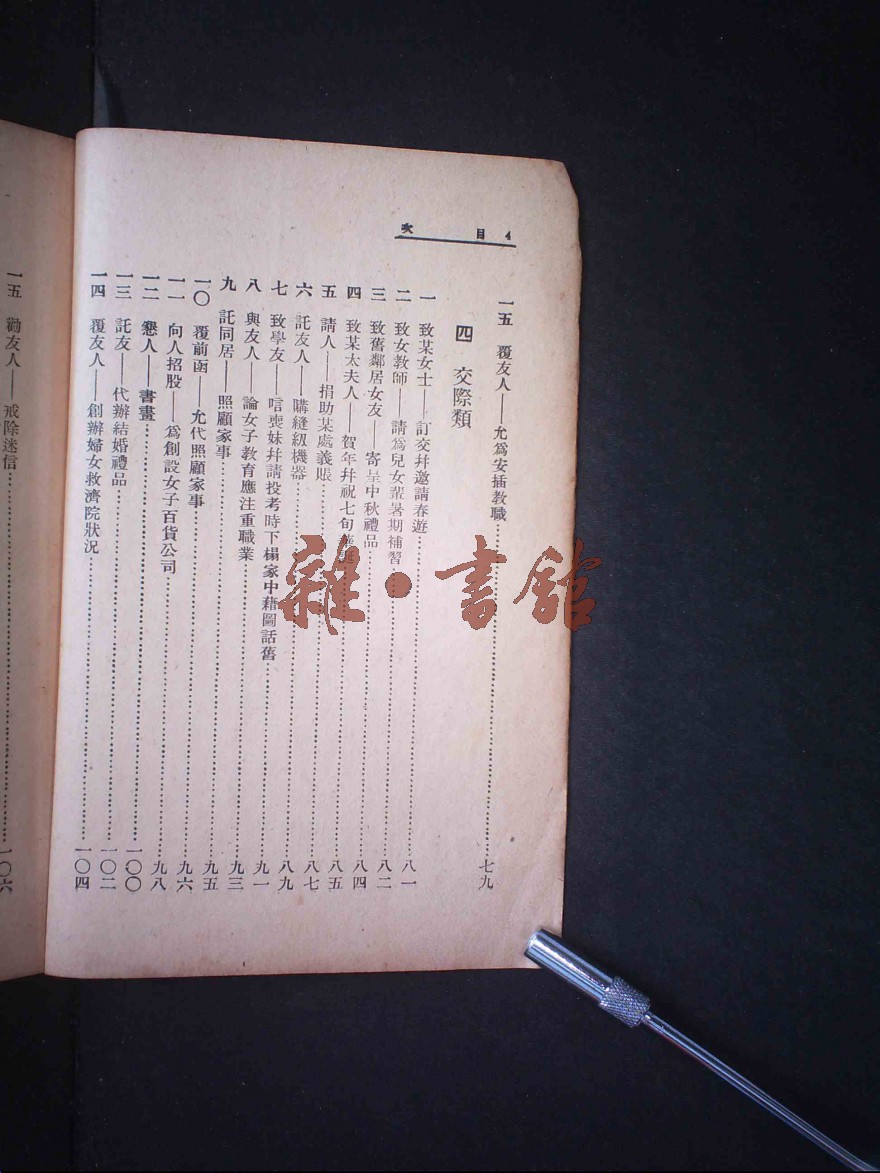 目次 4
一五 覆友人——允爲安插教職……七九
四 交際類
一 致某女士——訂交幷邀請春遊……八一
二 致女教師——請爲兒女輩暑期補習……八二
三 致舊鄰居女友——寄呈中秋禮品……八四
四 致某太夫人——賀年幷祝七旬……八五
五 請人——捐助某處義賬……八七
六 託友人——購縫級機器……八九
七 致學友——唁喪妹幷請投考時下榻家中藉圖話舊……九一
八 與友人——論女子教育應注重職業……九三
九 託同居——照顧家事……九五
一〇 覆前函——允代照顧家事……九六
一一 向人招股——爲創設女子百貨公司……九八
一二 懇人——書畫……一〇〇
一三 託友——代辦結婚禮品……一〇二
一四 覆友人——創辦婦女救濟院狀況……一〇四
一五 勸友人——戒除迷信……一〇六
雜·書館